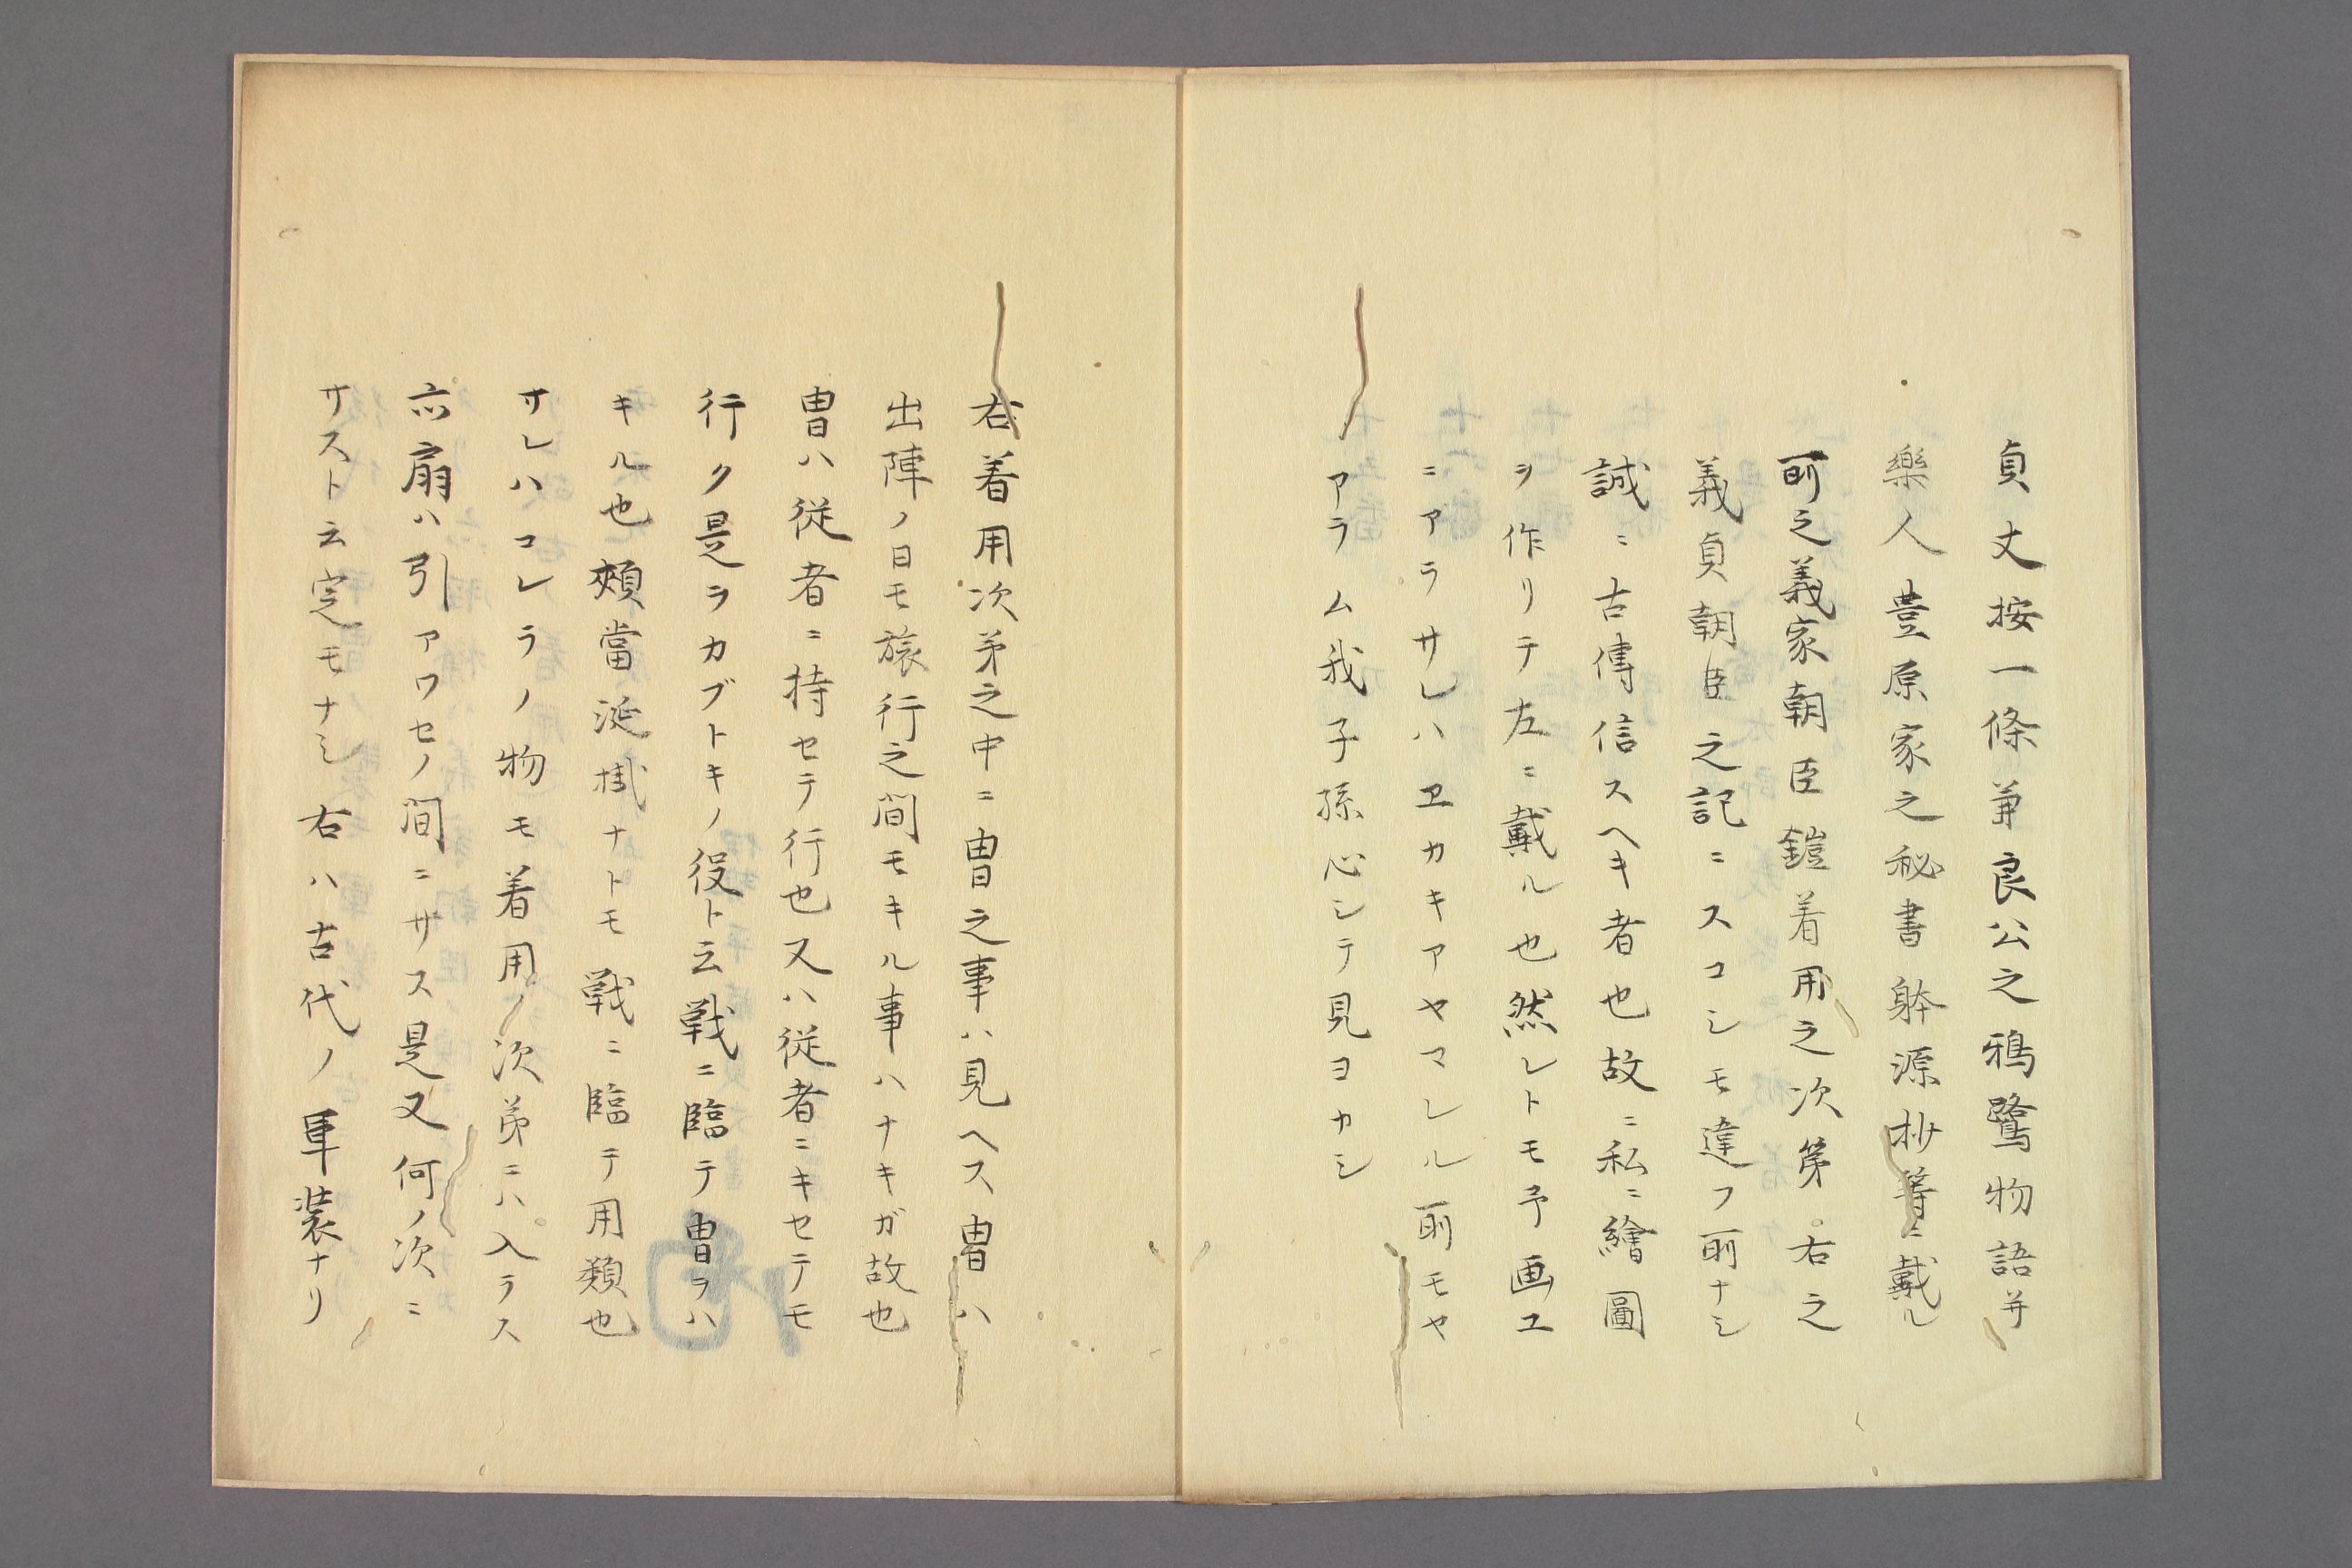 貞丈按一條兼良公之鴉鷺物語并
樂人豊原家之秘書躰源抄等ニ戴ル
所之義家朝臣鎧着用之次第右之
義貞朝臣之記ニスコシモ違フ所ナシ
誠ニ古傳信スヘキ者也故ニ私ニ繪圖
ヲ作リテ左ニ戴ル也然レトモ予画エ
ニアラサレハヱカキアヤマレル所モヤ
アラム我子孫心シテ見ヨカシ
右着用次苐之中ニ冑之事ハ見ヘス冑ハ
出陣ノ日モ旅行之間モキル事ハナキガ故也
冑ハ従者ニ持セテ行也又ハ従者ニキセテモ
行ク是ヲカブトキノ役ト云戦ニ臨テ冑ヲハ
キル也頬當涎掛ナトモ戦ニ臨テ用類也
サレハコレラノ物モ着用ノ次苐ニハ入ラス
亦扇ハ引アワセノ間ニサス是又何ノ次ニ
サスト云定モナシ右ハ古代ノ軍装ナリ